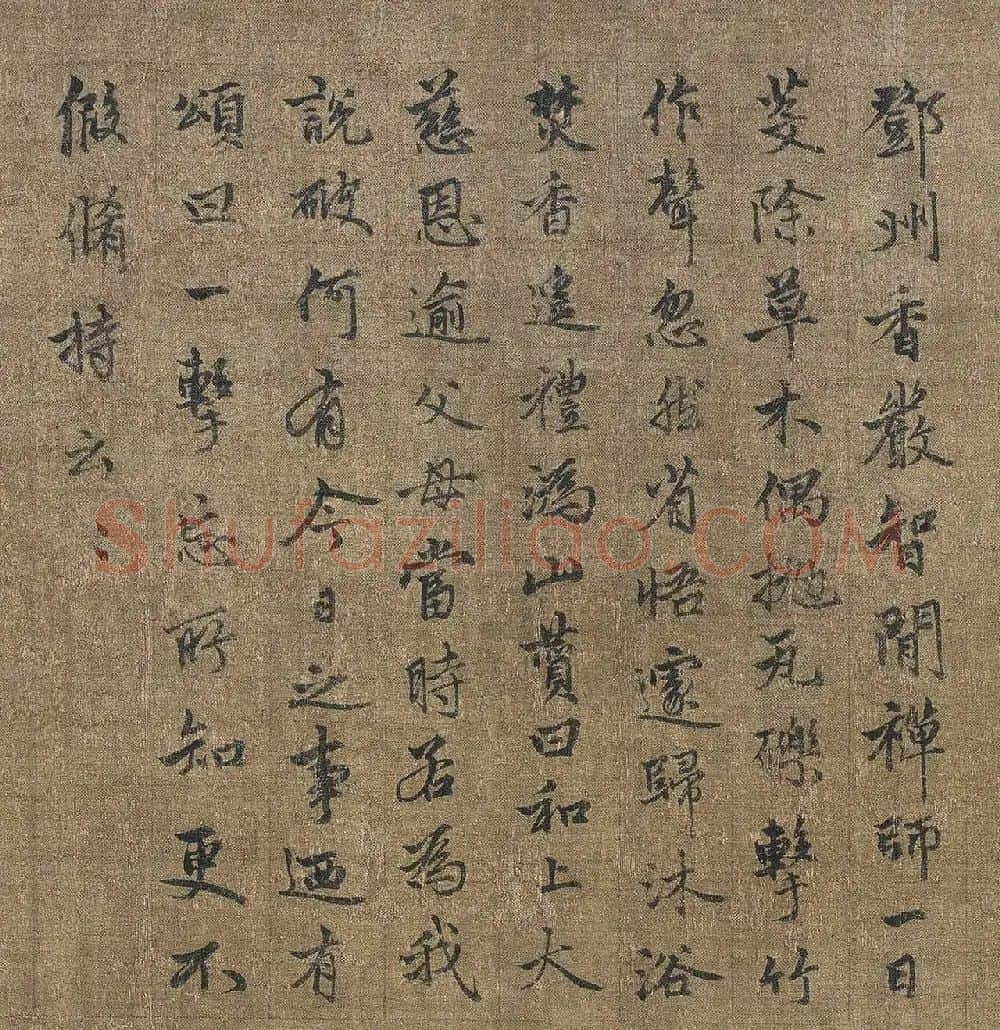 鄧州香嚴智閒禪師一日
芟除草木偶抛瓦礫擊竹
作聲忽然省悟遽歸沐浴
焚香遙禮潙山賛曰和上大
慈恩逾父母當時若為我
說破何有今日之事廼有
頌曰一擊忘所知更不
假脩持云〻
Shufaziliao.COM